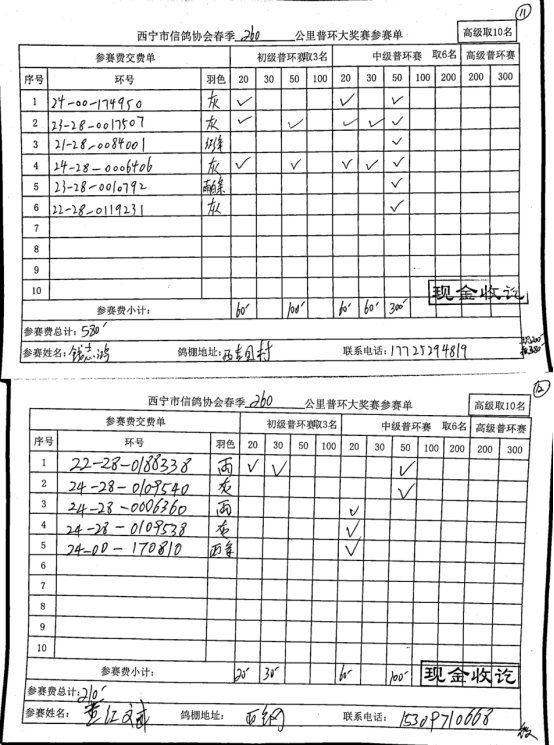 ⑪
西宁市信鸽协会春季 260 公里普环大奖赛参赛单 高级取10名
参赛费交费单 初级普环赛取3名 中级普环赛 取6名 高级普环赛
序号 环号 羽色 20 30 50 100 20 30 50 100 200 200 300
1 24-00-174950 灰 ✓ ✓ ✓
2 23-28-0017507 灰 ✓ ✓ ✓ ✓ ✓
3 21-28-0084001 ✓
4 24-28-0006406 灰 ✓ ✓ ✓ ✓ ✓
5 23-28-0010792 ✓
6 22-28-0119231 灰 ✓
7
8
9
10
现金收讫
参赛费小计: 60 100 60 60 300
参赛费总计: 580
参赛姓名: 钱志鸿 鸽棚地址: 联系电话: 17725294819
⑫
西宁市信鸽协会春季 260 公里普环大奖赛参赛单 高级取10名
参赛费交费单 初级普环赛取3名 中级普环赛 取6名 高级普环赛
序号 环号 羽色 20 30 50 100 20 30 50 100 200 200 300
1 22-28-0188338 雨 ✓ ✓ ✓
2 24-28-0109540 灰 ✓
3 24-28-0006360 雨 ✓
4 24-28-0109538 灰 ✓
5 24-00-170810 ✓
6
7
8
9
10
参赛费小计: 20 30 60 100 现金收讫
参赛费总计: 210
参赛姓名: 鸽棚地址: 联系电话: 15309710668